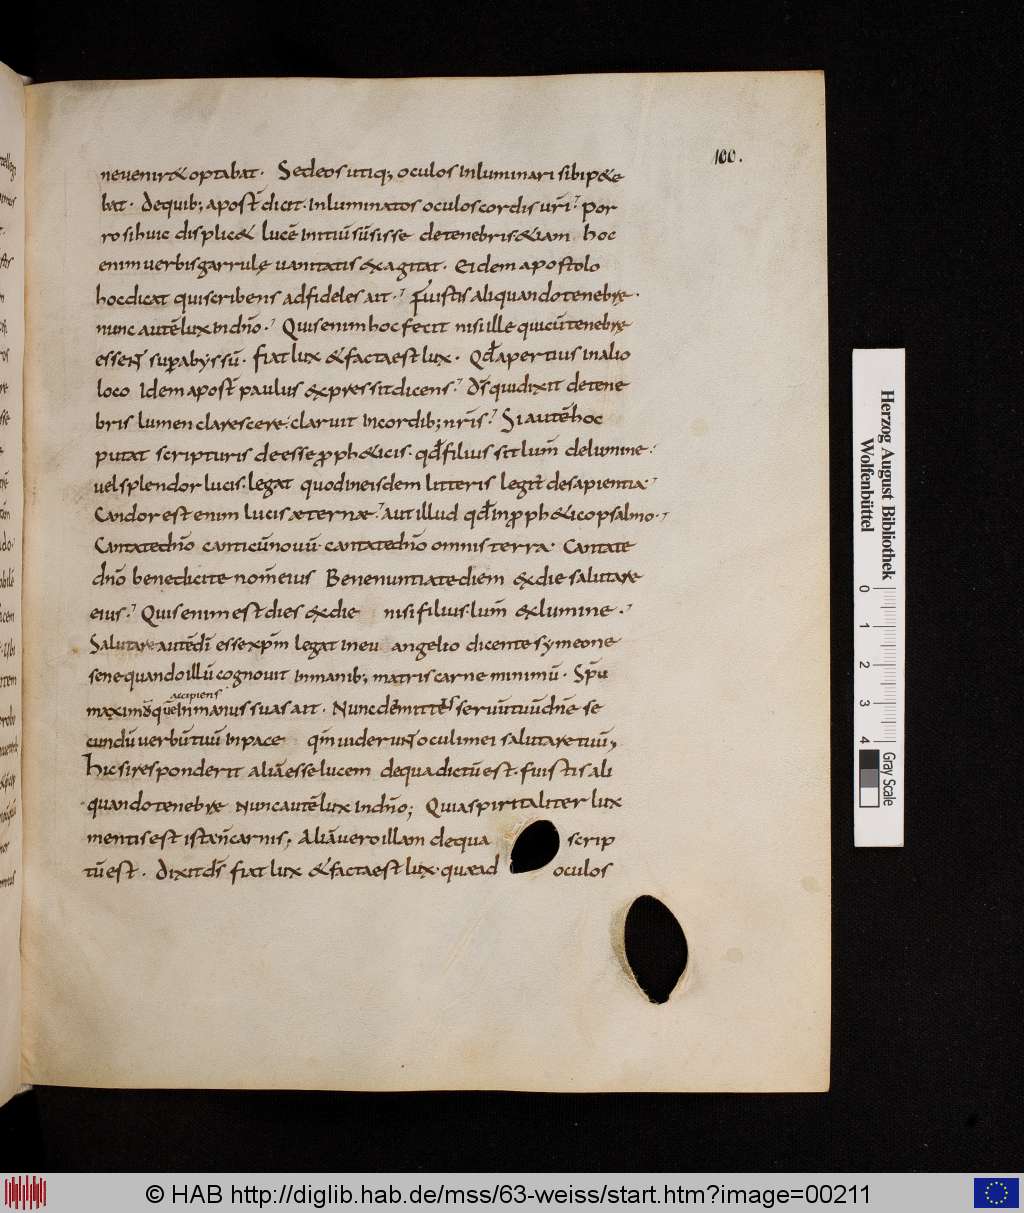 100.
nevenir&optabat. Sedeos utiq; oculos inluminari sibip&e
bat. Dequib; apost̄ dicit. inluminatos oculoscordis ur̄i. Por
ro sihuic displic& lucē initiū sūsisse detenebris&iam hoc
enimuerbisgarrulę uanitatis exagitat. Eidem apostolo
hocdicat quiscribens adfideles ait. Fuistis aliquandotenebrę.
nunc autē lux indn̄o. Quisenimhocfecit nisiille quicūtenebrę
essen̄t supabyssū. fiat lux &factaest lux. Qd̄apertius inalio
loco Idem apost̄ paulus expressitdicens. Dr̄squidixit detene
bris lumen clarescere. claruit incordib; nr̄is. Siautēhoc
putat scripturis deesse proph&icis. qd̄filius sit lum̄ delumine.
uelsplendorlucis. legat quodineisdem litteris legit̄ desapientia
Candorestenim lucis æternæ. aut illud qd̄inproph&icopsalmo.
Cantatedn̄o canticūnouū. cantatedn̄o omnis terra. Cantate
dn̄o benedicite nom̄eius Benenuntiatediem exdie salutare
eius. Quisenimest dies exdie nisi filius. lum̄ exlumine.
Salutareautēdī essexpm̄ legat ineu angelio dicentesymeone
sene quandoillū cognouit inmanib; matris carne minimū. Spū
accipiens
maximōquēinmanus suas ait. Nuncdēmittēs seruūtuūdn̄e se
cundū uerbūtuū inpace qm̄uiderun̄toculimei salutaretuū,
Hicsiresponderit aliāesselucem dequadictūest. fuistis ali
quandotenebrę nuncautēlux indn̄o; Quiaspiritaliter lux
mentisest istan̄carnis; Aliāueroillam dequa scrip
tūest. Dixitds̄ fiat lux &factaest lux. quæad oculos
Herzog August Bibliothek
Wolfenbüttel
0 1 2 3 4
Gray Scale
© HAB http://diglib.hab.de/mss/63-weiss/start.htm?image=00211